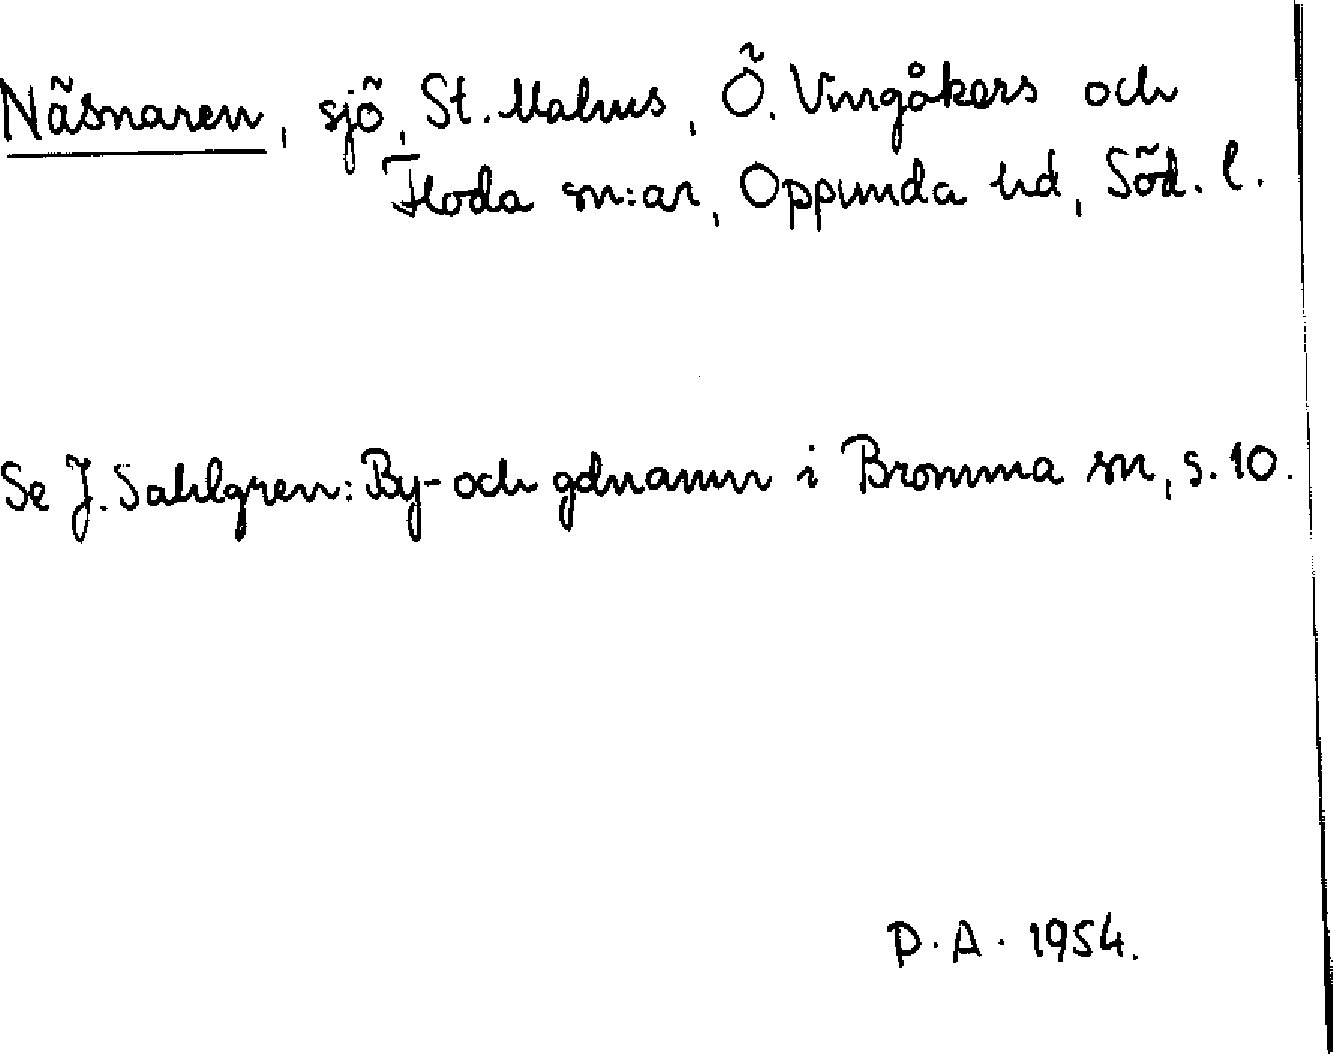 Näsnaren, sjö, St. Malms, Ö. Vingåkers och
Floda sn:ar, Oppunda hd, Söd. l.
Se J. Sahlgren: By- och gdnamn i Bromma sn, s. 10.
P. A. 1954.